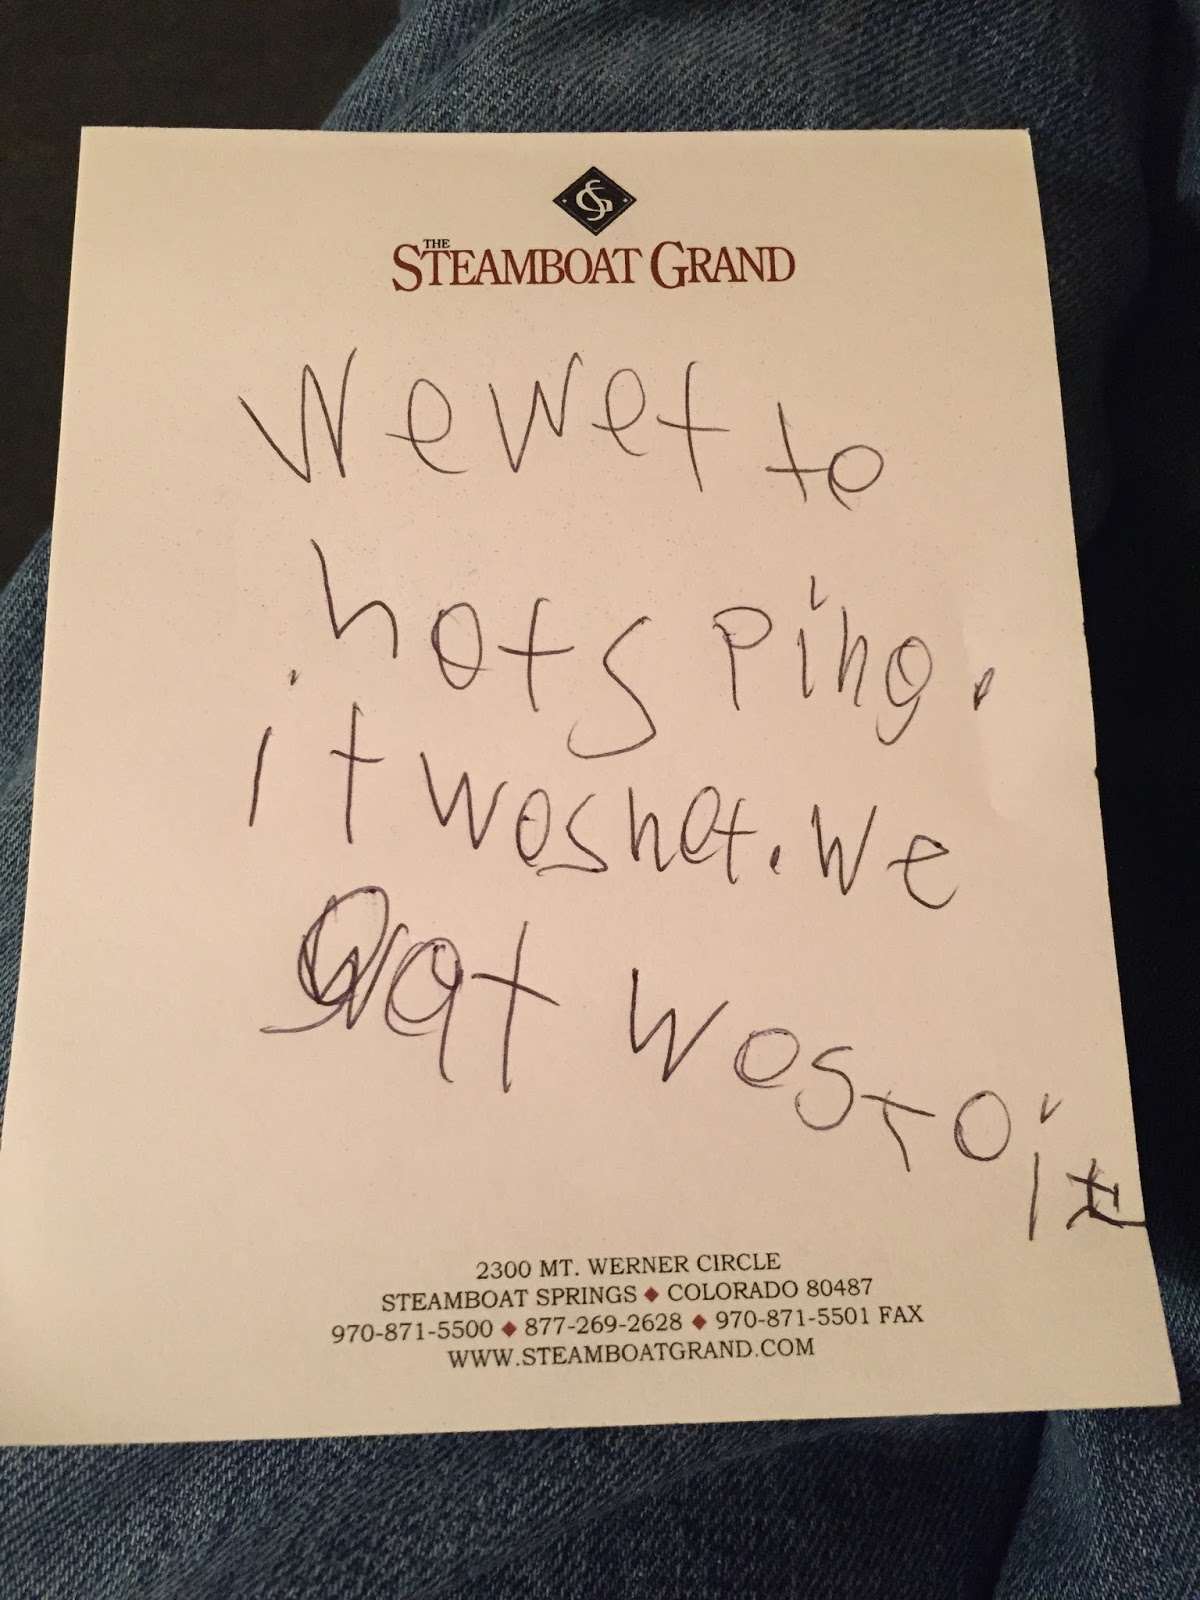 THE
STEAMBOAT GRAND
We wet to
hotsping.
it woshot. We
gat wostoit
2300 MT. WERNER CIRCLE
STEAMBOAT SPRINGS ◆ COLORADO 80487
970-871-5500 ◆ 877-269-2628 ◆ 970-871-5501 FAX
WWW.STEAMBOATGRAND.COM